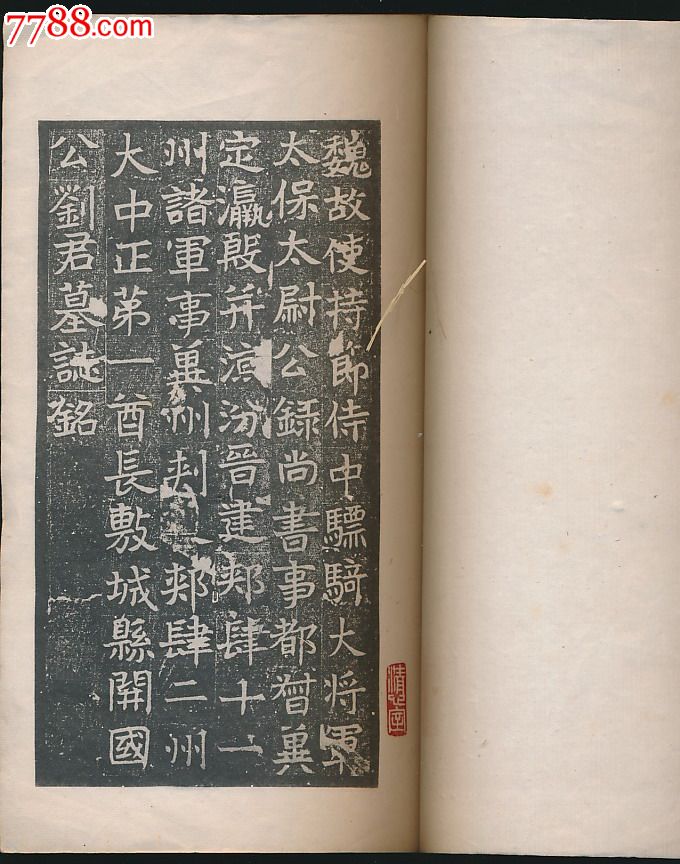 7788.com
魏故使持節侍中驃騎大将軍
太保太尉公録尚書事都督冀
定瀛殷并涼汾晉建郟肆十一
州諸軍事冀州刾郟肆二州
大中正苐一酋長敷城縣開國
公劉君墓誌銘